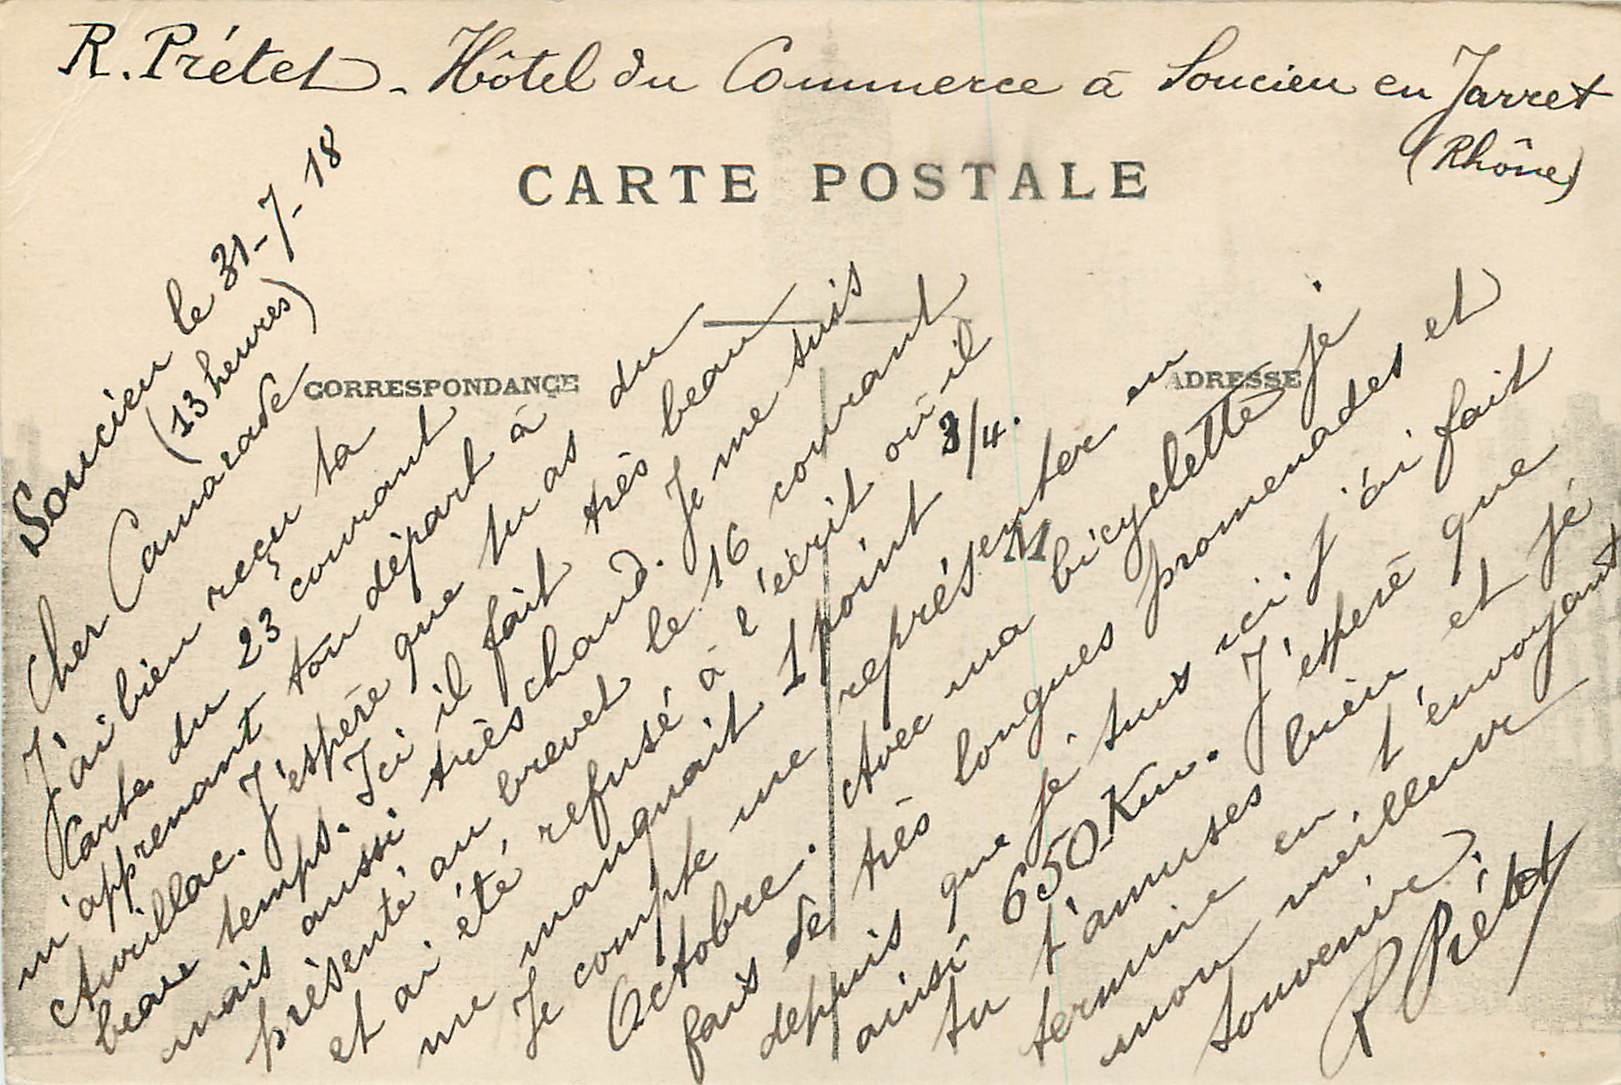 R. Prétet - Hôtel du Commerce à Soucieu en Jarret
(Rhône)
CARTE POSTALE
CORRESPONDANCE
ADRESSE
Soucieu le 31-7-18
(13 heures)
Cher Camarade
J'ai bien reçu ta
carte du 23 courant
m'apprenant ton départ à
Aurillac. J'espère que tu as du
beau temps. Ici il fait très beau
mais aussi très chaud. Je me suis
présenté au brevet le 16 courant
et ai été refusé à l'écrit où il
me manquait 1 point 3/4.
Je compte me représenter en
Octobre. Avec ma bicyclette je
fais de très longues promenades et
depuis que je suis ici j'ai fait
ainsi 650 Km. J'espère que
tu t'amuses bien et je
termine en t'envoyant
mon meilleur
souvenir.
R Prétet
M